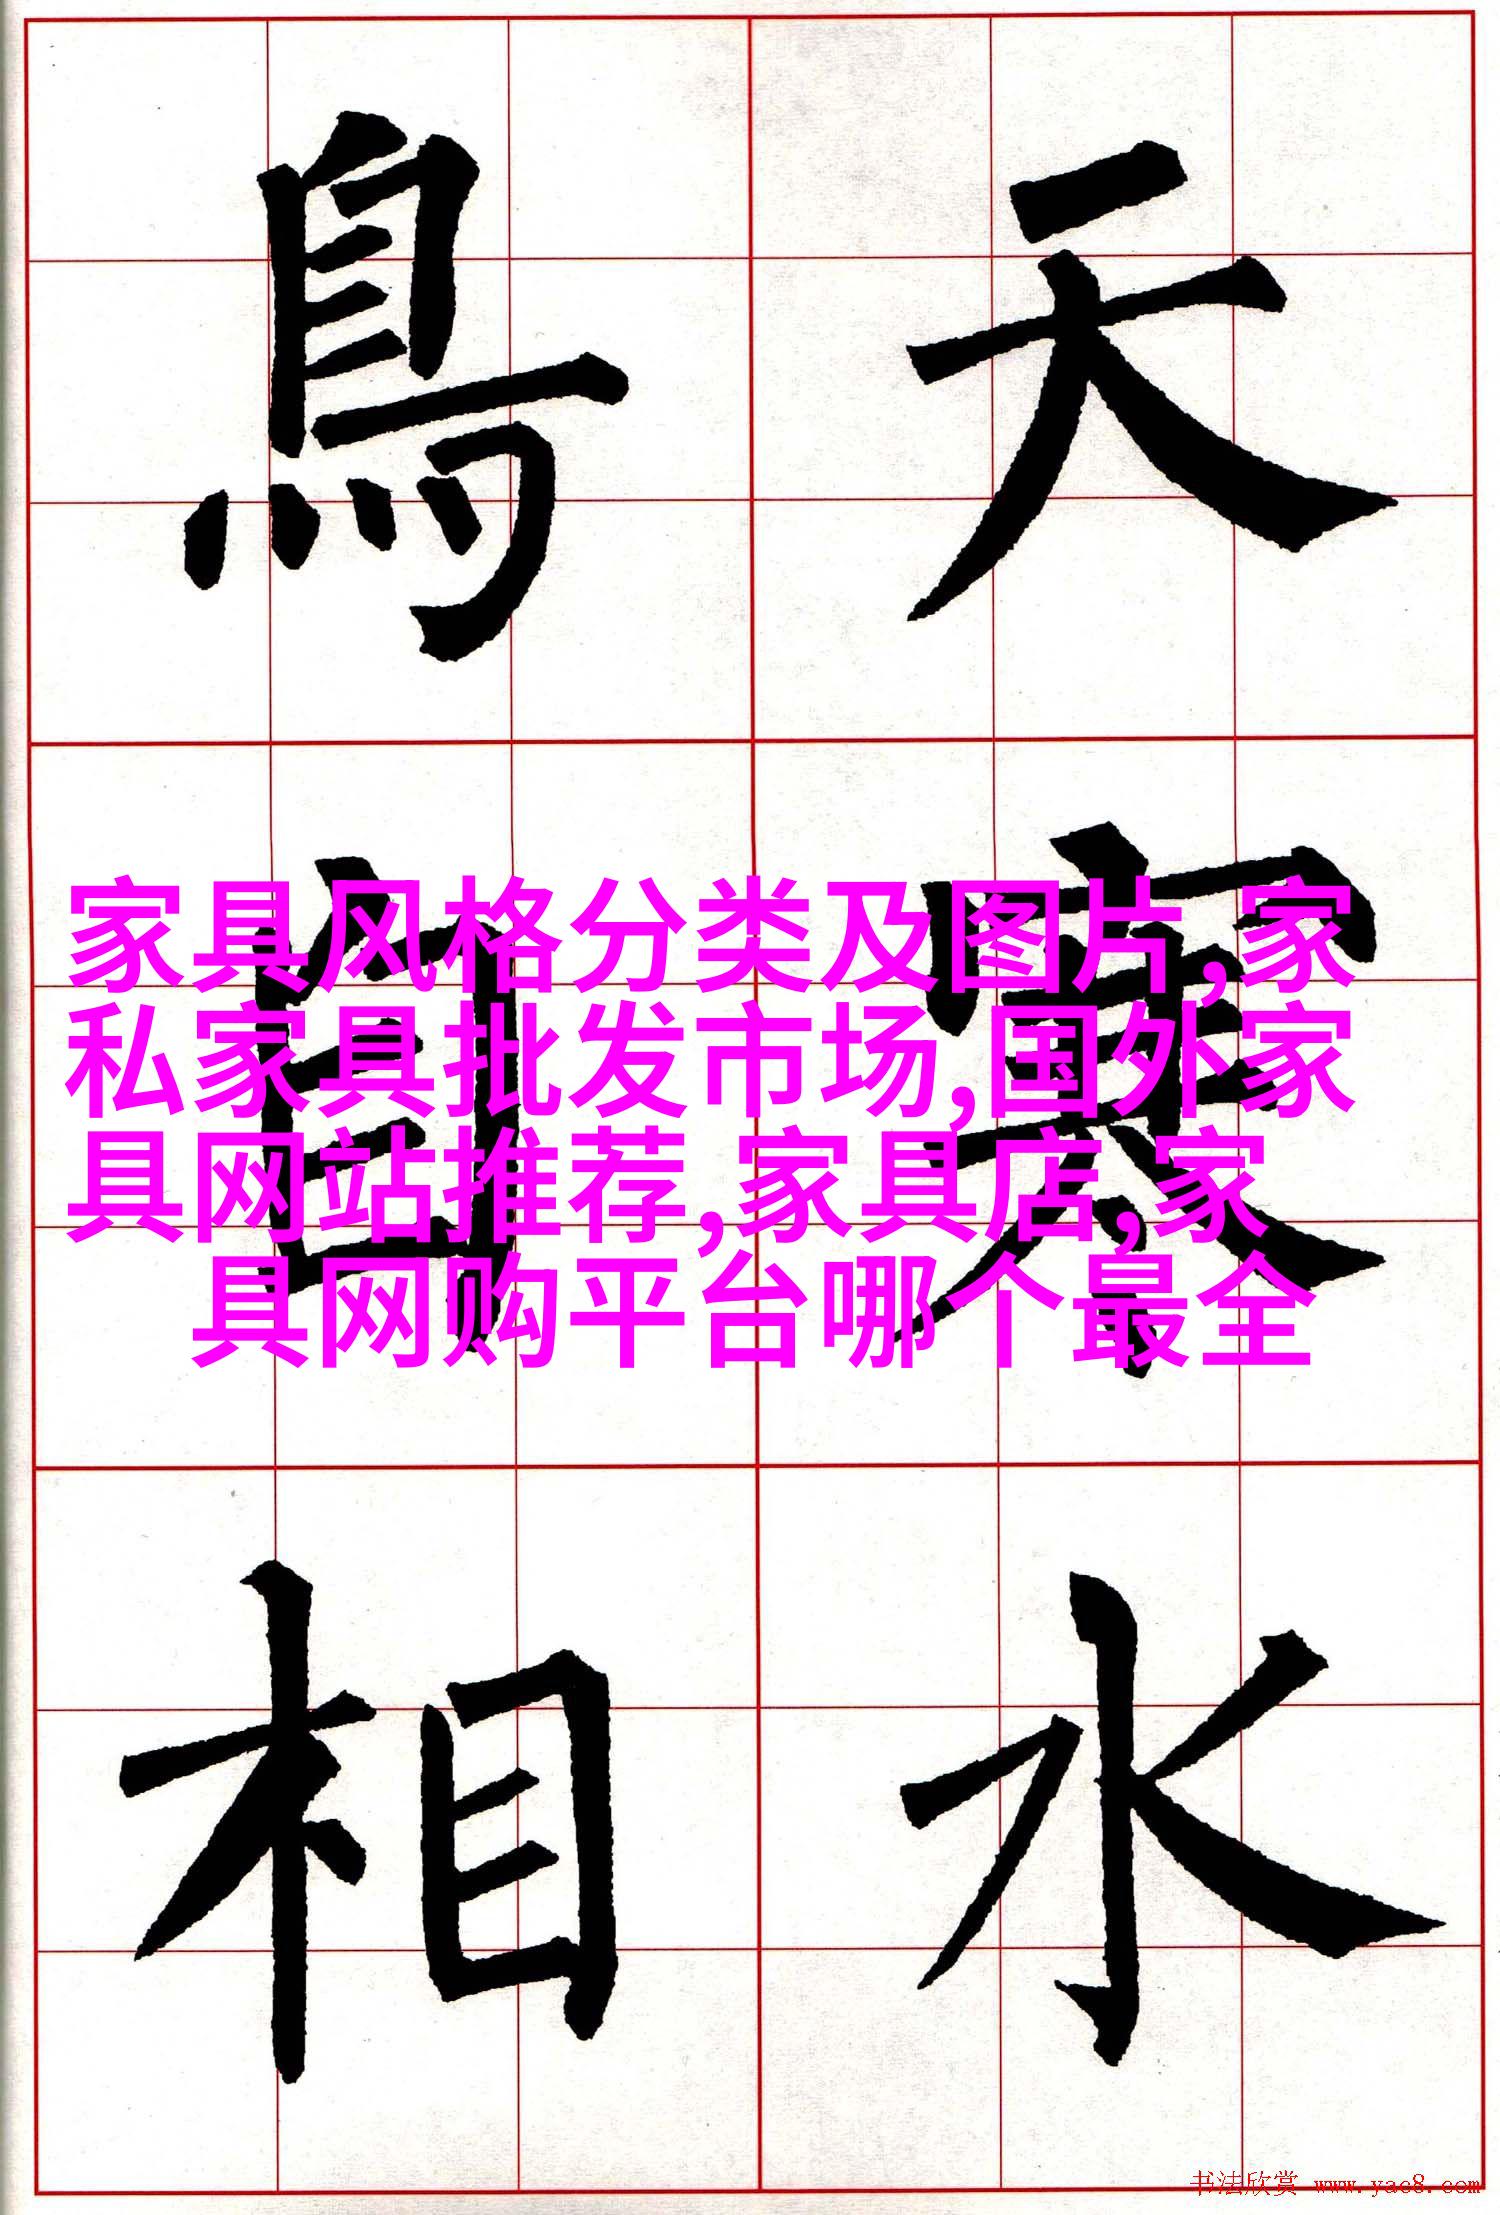 天寒水
鳥自相
家具风格分类及图片,家
私家具批发市场,国外家
具网站推荐,家具店,家
具网购平台哪个最全
书法欣赏 www.yac8.com